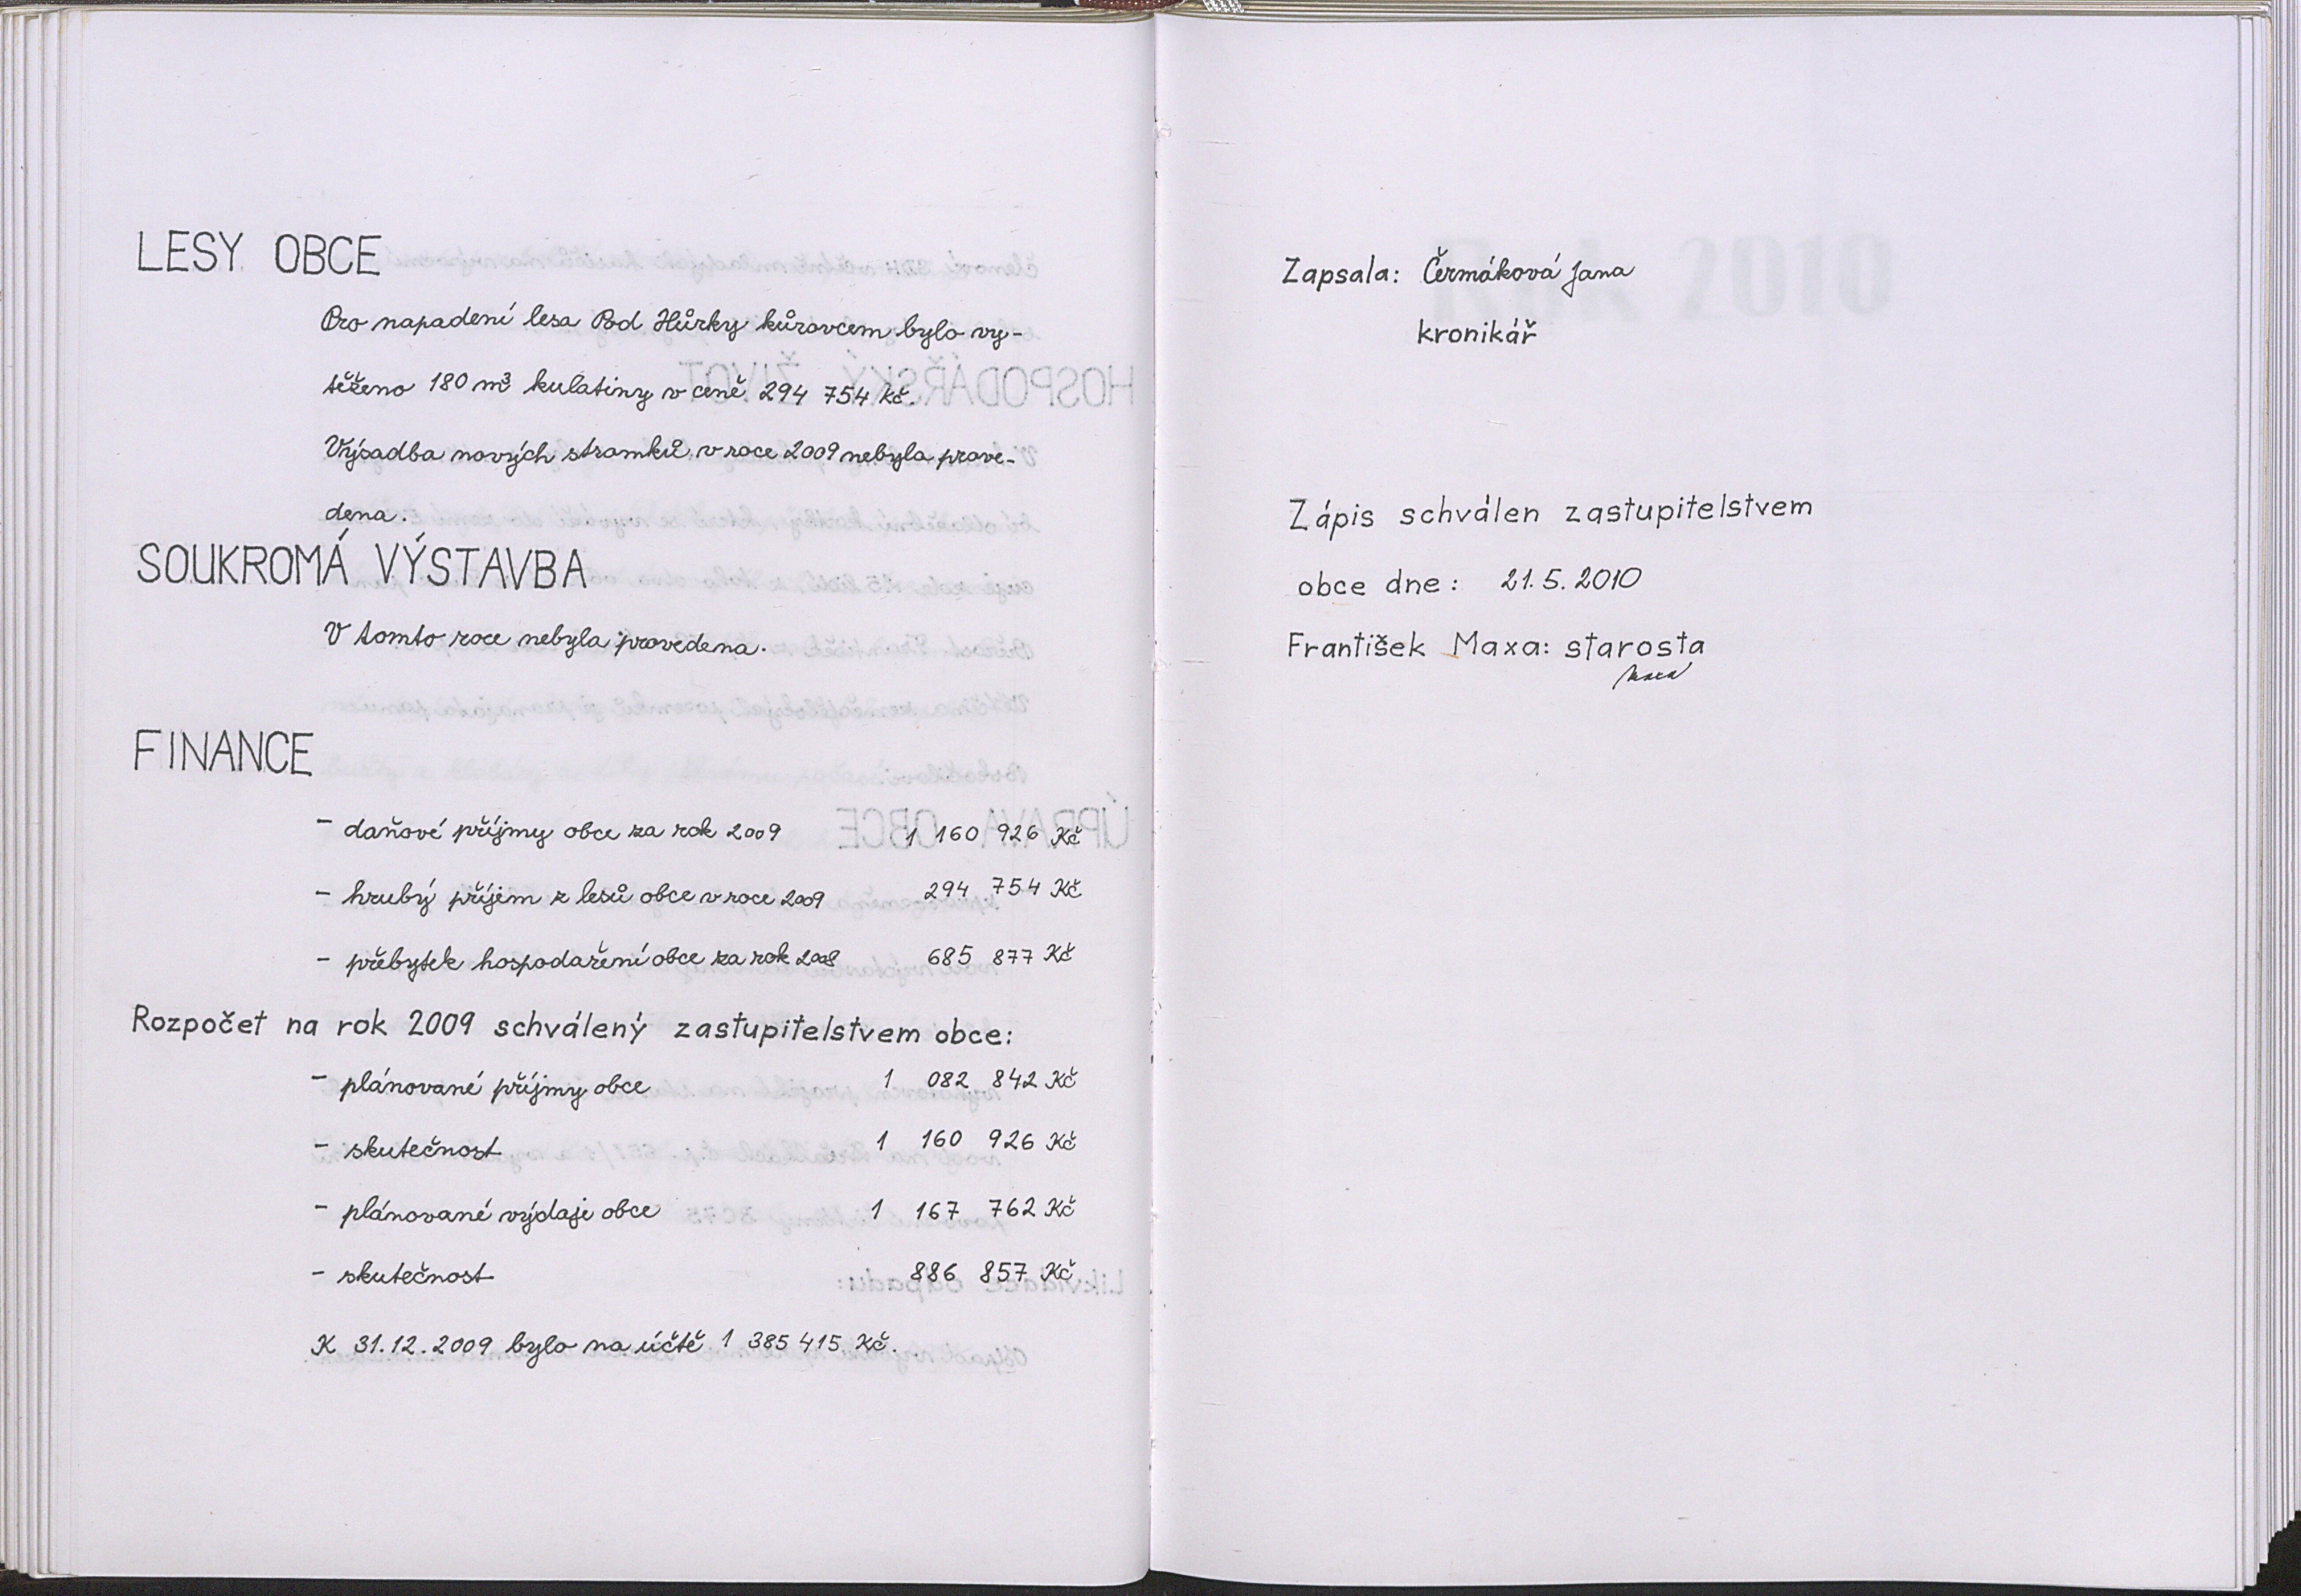 LESY OBCE
Pro napadení lesa Pod Hůrky kůrovcem bylo vy-
těženo 180 m³ kulatiny v ceně 294 754 Kč.
Výsadba nových stromků v roce 2009 nebyla prove-
dena.
SOUKROMÁ VÝSTAVBA
V tomto roce nebyla provedena.
FINANCE
- daňové příjmy obce za rok 2009 1 160 926 Kč
- hrubý příjem z lesů obce v roce 2009 294 754 Kč
- přebytek hospodaření obce za rok 2008 685 877 Kč
Rozpočet na rok 2009 schválený zastupitelstvem obce:
- plánované příjmy obce 1 082 842 Kč
- skutečnost 1 160 926 Kč
- plánované výdaje obce 1 167 762 Kč
- skutečnost 886 857 Kč
K 31.12.2009 bylo na účtě 1 385 415 Kč.
Zapsala: Čermáková Jana
kronikář
Zápis schválen zastupitelstvem
obce dne: 21.5.2010
František Maxa: starosta
Maxa